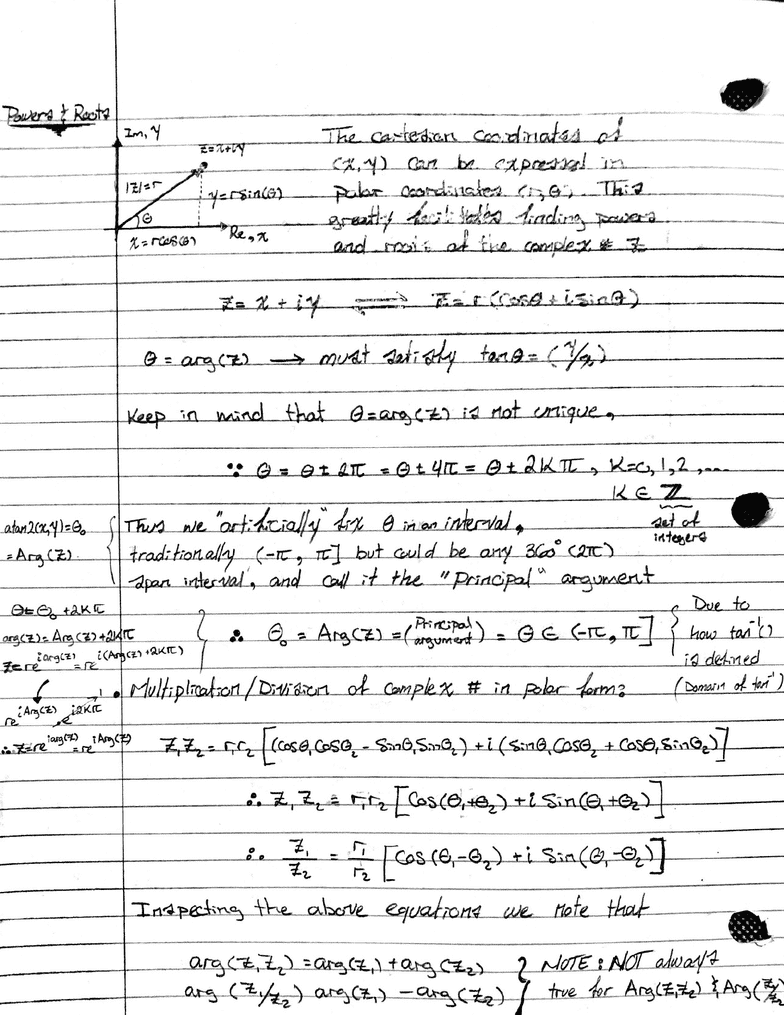 Powers & Roots
Im, y
z=x+iy
|z|=r
y=rsin(θ)
θ
x=rcos(θ)
Re, x
The cartesian coordinates of
(x,y) can be expressed in
polar coordinates (r,θ). This
greatly facilitates finding powers
and roots of the complex # z
z = x + iy ⟺ z = r (cosθ + i sinθ)
θ = arg(z) → must satisfy tanθ = (y/x)
Keep in mind that θ=arg(z) is not unique.
∵ θ = θ ± 2π = θ ± 4π = θ ± 2Kπ, K=0,1,2,...
K ∈ ℤ
set of
integers
atan2(x,y)=θ₀
=Arg(z)
Thus we "artificially" fix θ in an interval,
traditionally (-π, π] but could be any 360° (2π)
span interval, and call it the "Principal" argument
θ=θ₀+2Kπ
arg(z)=Arg(z)+2Kπ
z=re^{iarg(z)}=re^{i(Arg(z)+2Kπ)}
re^{iArg(z)}.e^{i2Kπ} 1
∴ z=re^{iarg(z)}=re^{iArg(z)}
∴ θ₀ = Arg(z) = (Principal argument) = θ ∈ (-π, π]
Due to
how tan⁻¹()
is defined
(Domain of tan⁻¹)
• Multiplication/Division of complex # in polar form:
z₁z₂ = r₁r₂ [(cosθ₁cosθ₂ - sinθ₁sinθ₂) + i (sinθ₁cosθ₂ + cosθ₁sinθ₂)]
∴ z₁z₂ = r₁r₂ [cos(θ₁+θ₂) + i sin(θ₁+θ₂)]
∴ z₁/z₂ = r₁/r₂ [cos(θ₁-θ₂) + i sin(θ₁-θ₂)]
Inspecting the above equations we note that
arg(z₁z₂) = arg(z₁) + arg(z₂)
arg(z₁/z₂) arg(z₁) - arg(z₂)
NOTE: NOT always
true for Arg(z₁z₂) & Arg(z₁/z₂)